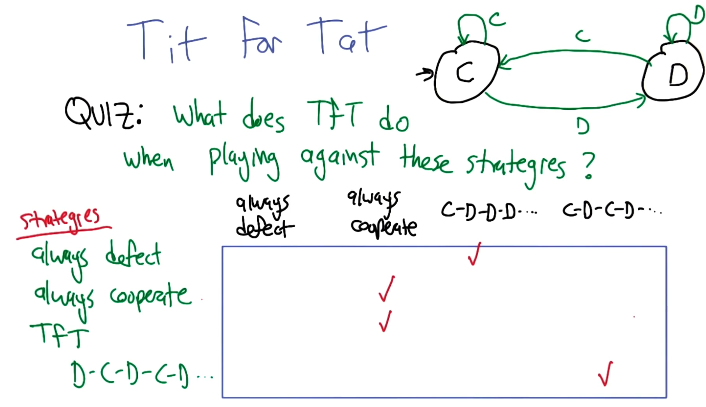 Tit for Tat
C
D
C
C
D
D
QUIZ: What does TfT do
when playing against these strategies?
strategies
always defect
always cooperate
C-D-D-D-...
C-D-C-D-...
always defect
✓
always cooperate
✓
TfT
✓
D-C-D-C-D...
✓